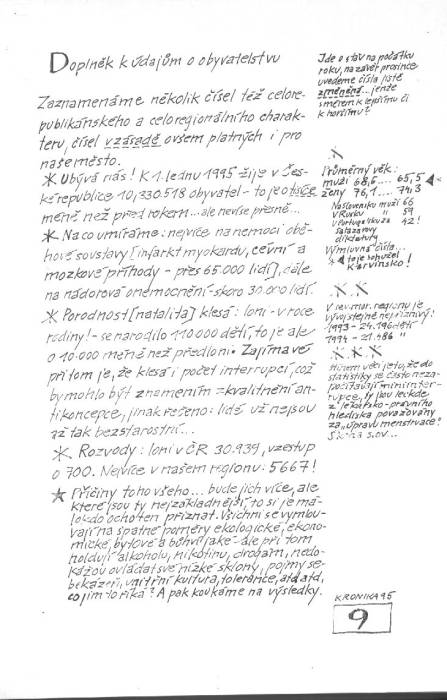 Doplněk k údajům o obyvatelstvu
Zaznamenáme několik čísel též celore-
publikánského a celoregionálního charak-
teru, čísel vzásadě ovšem platných i pro
naše město.
* Ubývá nás! K 1. lednu 1995 žije v Čes-
ké republice 10,330.518 obyvatel - to je o tisíce
méně než před rokem... ale nevíse přesně...
* Na co umíráme: nejvíce na nemoci obě-
hové soustavy [infarkt myokardu, cévní a
mozkové příhody - přes 65.000 lidí], dále
na nádorová onemocnění - skoro 30.000 lidí.
* Porodnost [natalita] klesá: loni - v roce
rodiny! - se narodilo 110 000 dětí, to je ale
o 10.000 méně než předloni. Zajímavé
při tom je, že klesá i počet interrupcí, což
by mohlo být znamením zkvalitnění an-
tikoncepce, jinak řečeno: lidé už nejsou
až tak bezstarostní...
* Rozvody: loni v ČR 30.939, vzestup
o 700. Nejvíce v našem regionu: 5667!
* Příčiny toho všeho... bude jich více, ale
které jsou ty nejzákladnější, to si je má-
lokdo ochoten přiznat. Všichni se vymlou-
vají na špatné poměry ekologické, ekono-
mické, bytové a bůhví jaké - ale při tom
holdují alkoholu, nikotinu, drogám, nedo-
kážou ovládat své nízké sklony, pojmy se-
bekázeň, vnitřní kultura, tolerance, atd atd,
co jim to říká? A pak koukáme na výsledky.
Jde o stav na počátku
roku, na závěr prosince
uvedeme čísla jistě
změněná... jenže
směrem k lepšímu či
k horšímu?
*
Průměrný věk:
muži 68,5.... 65,5
ženy 76,1.... 74,3
Na Slovensku muži 66
v Rusku " 59
v Portugalsku za 42!
Salazarovy
diktatury
Výmluvná čísla...
to je bohužel
Karvinsko!
* *
V sev. mor. regionu je
vývoj stejně nepříznivý:
1993 - 24.196 dětí
1994 - 21.486 "
* * *
věci je to, že do
statistiky se často neza-
počítávají miniinter-
rupce, ty jsou leckde
z lékařsko-právního
hlediska považovány
za „úpravu menstruace".
KRONIKA 95
9